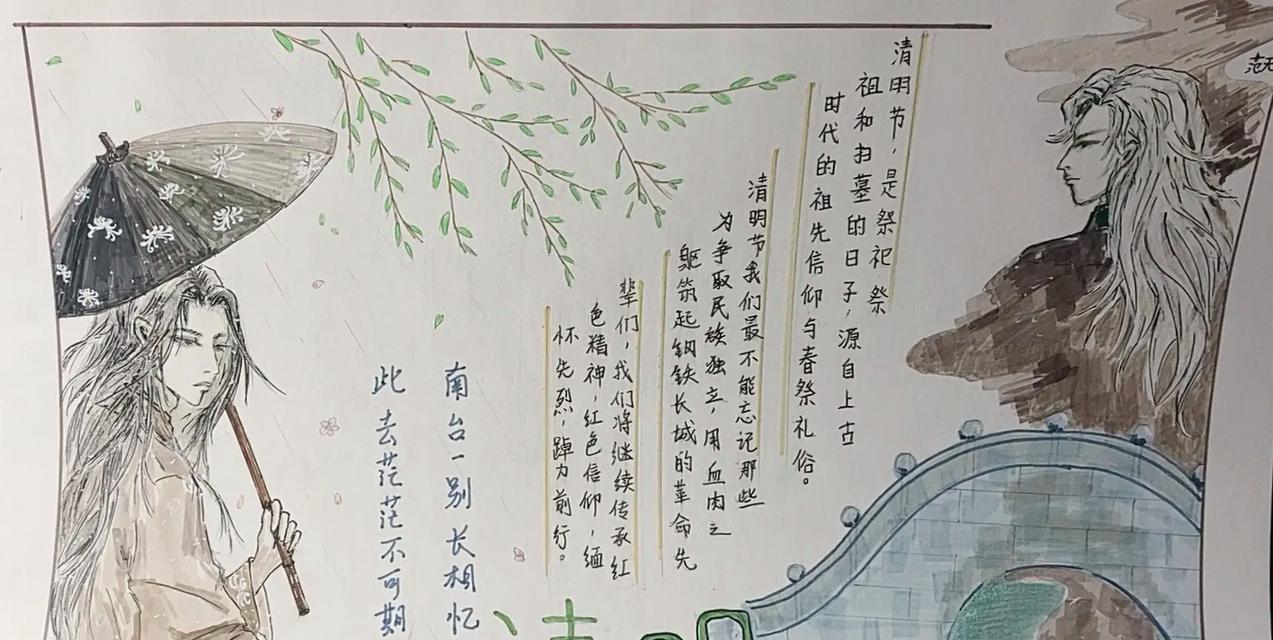 清明节，是祭祀祭
祖和扫墓的日子，源自上古
时代的祖先信仰与春祭礼俗。
清明节我们最不能忘记那些
为争取民族独立，用血肉之
躯筑起钢铁长城的革命先
辈们，我们将继续传承红
色精神，红色信仰，缅
怀先烈，踔力前行。
南台一别长相忆
此去茫茫不可期
范